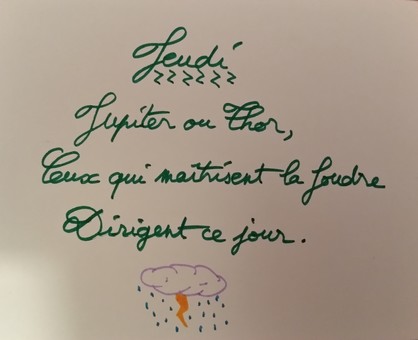 Jeudi
Jupiter ou Thor,
Ceux qui maîtrisent la foudre
Dirigent ce jour.